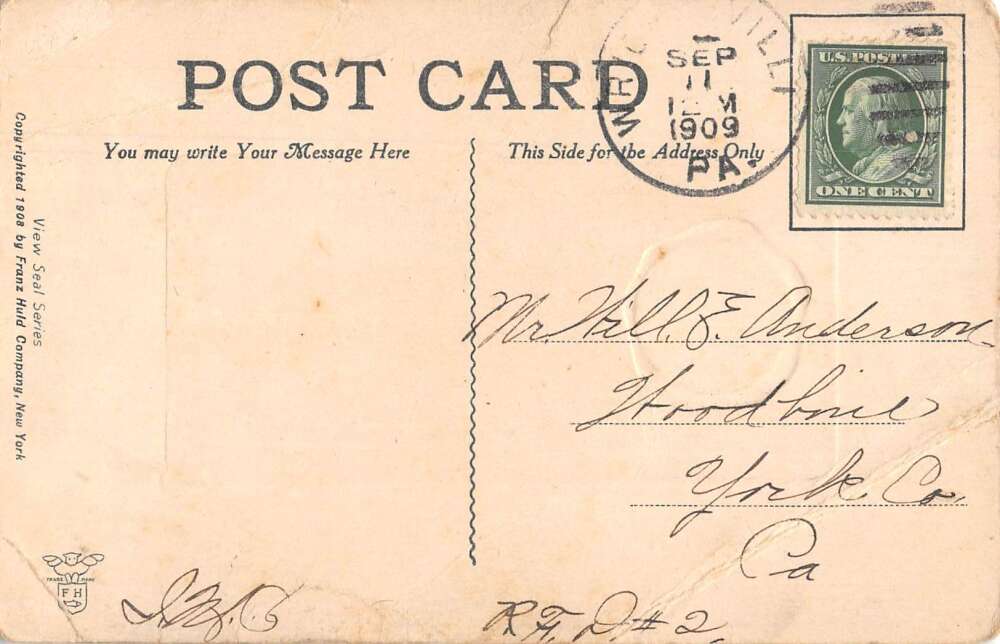 POST CARD
You may write Your Message Here
This Side for the Address Only
SEP
11
12 M
1909
PA.
U.S. POSTAGE
ONE CENT
Mr. Will. E. Anderson
Woodbine
York Co.
Pa
R.F.D #2
View Seal Series
Copyrighted 1908 by Franz Huld Company, New York
TRADE MARK
F H